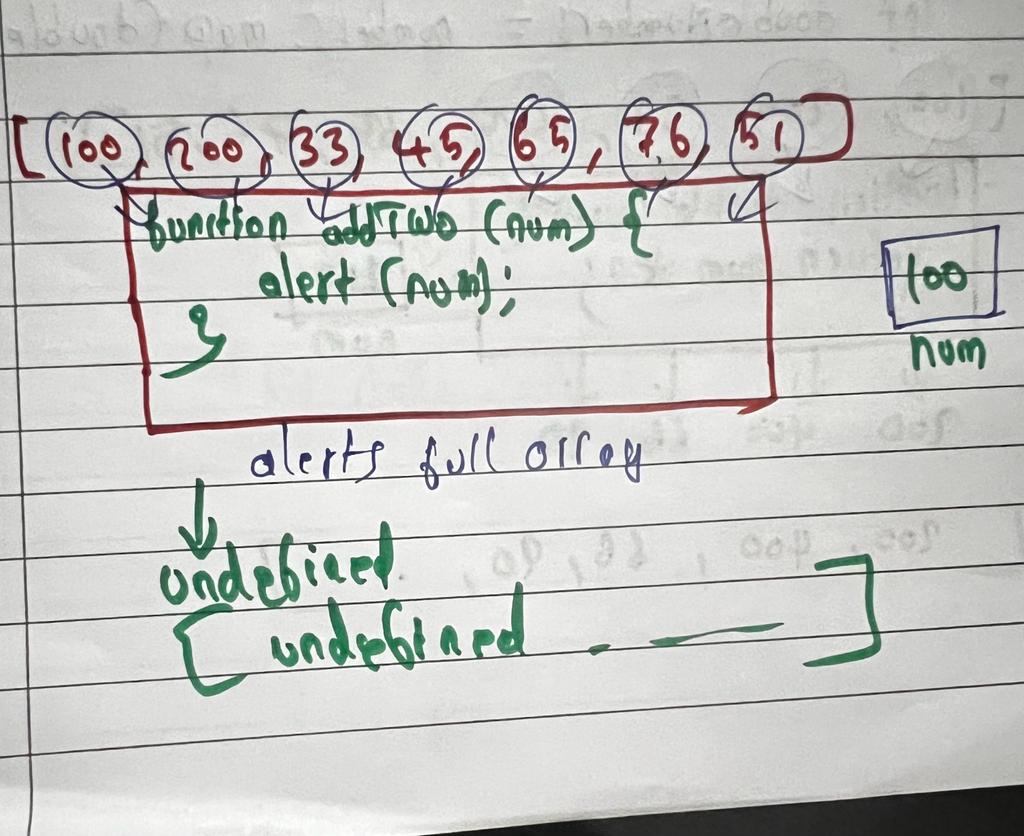 [100, 200, 33, 45, 65, 76, 51]
function addTwo (num) {
alert (num);
}
100
num
alerts full array
undefined
[ undefined . — ]